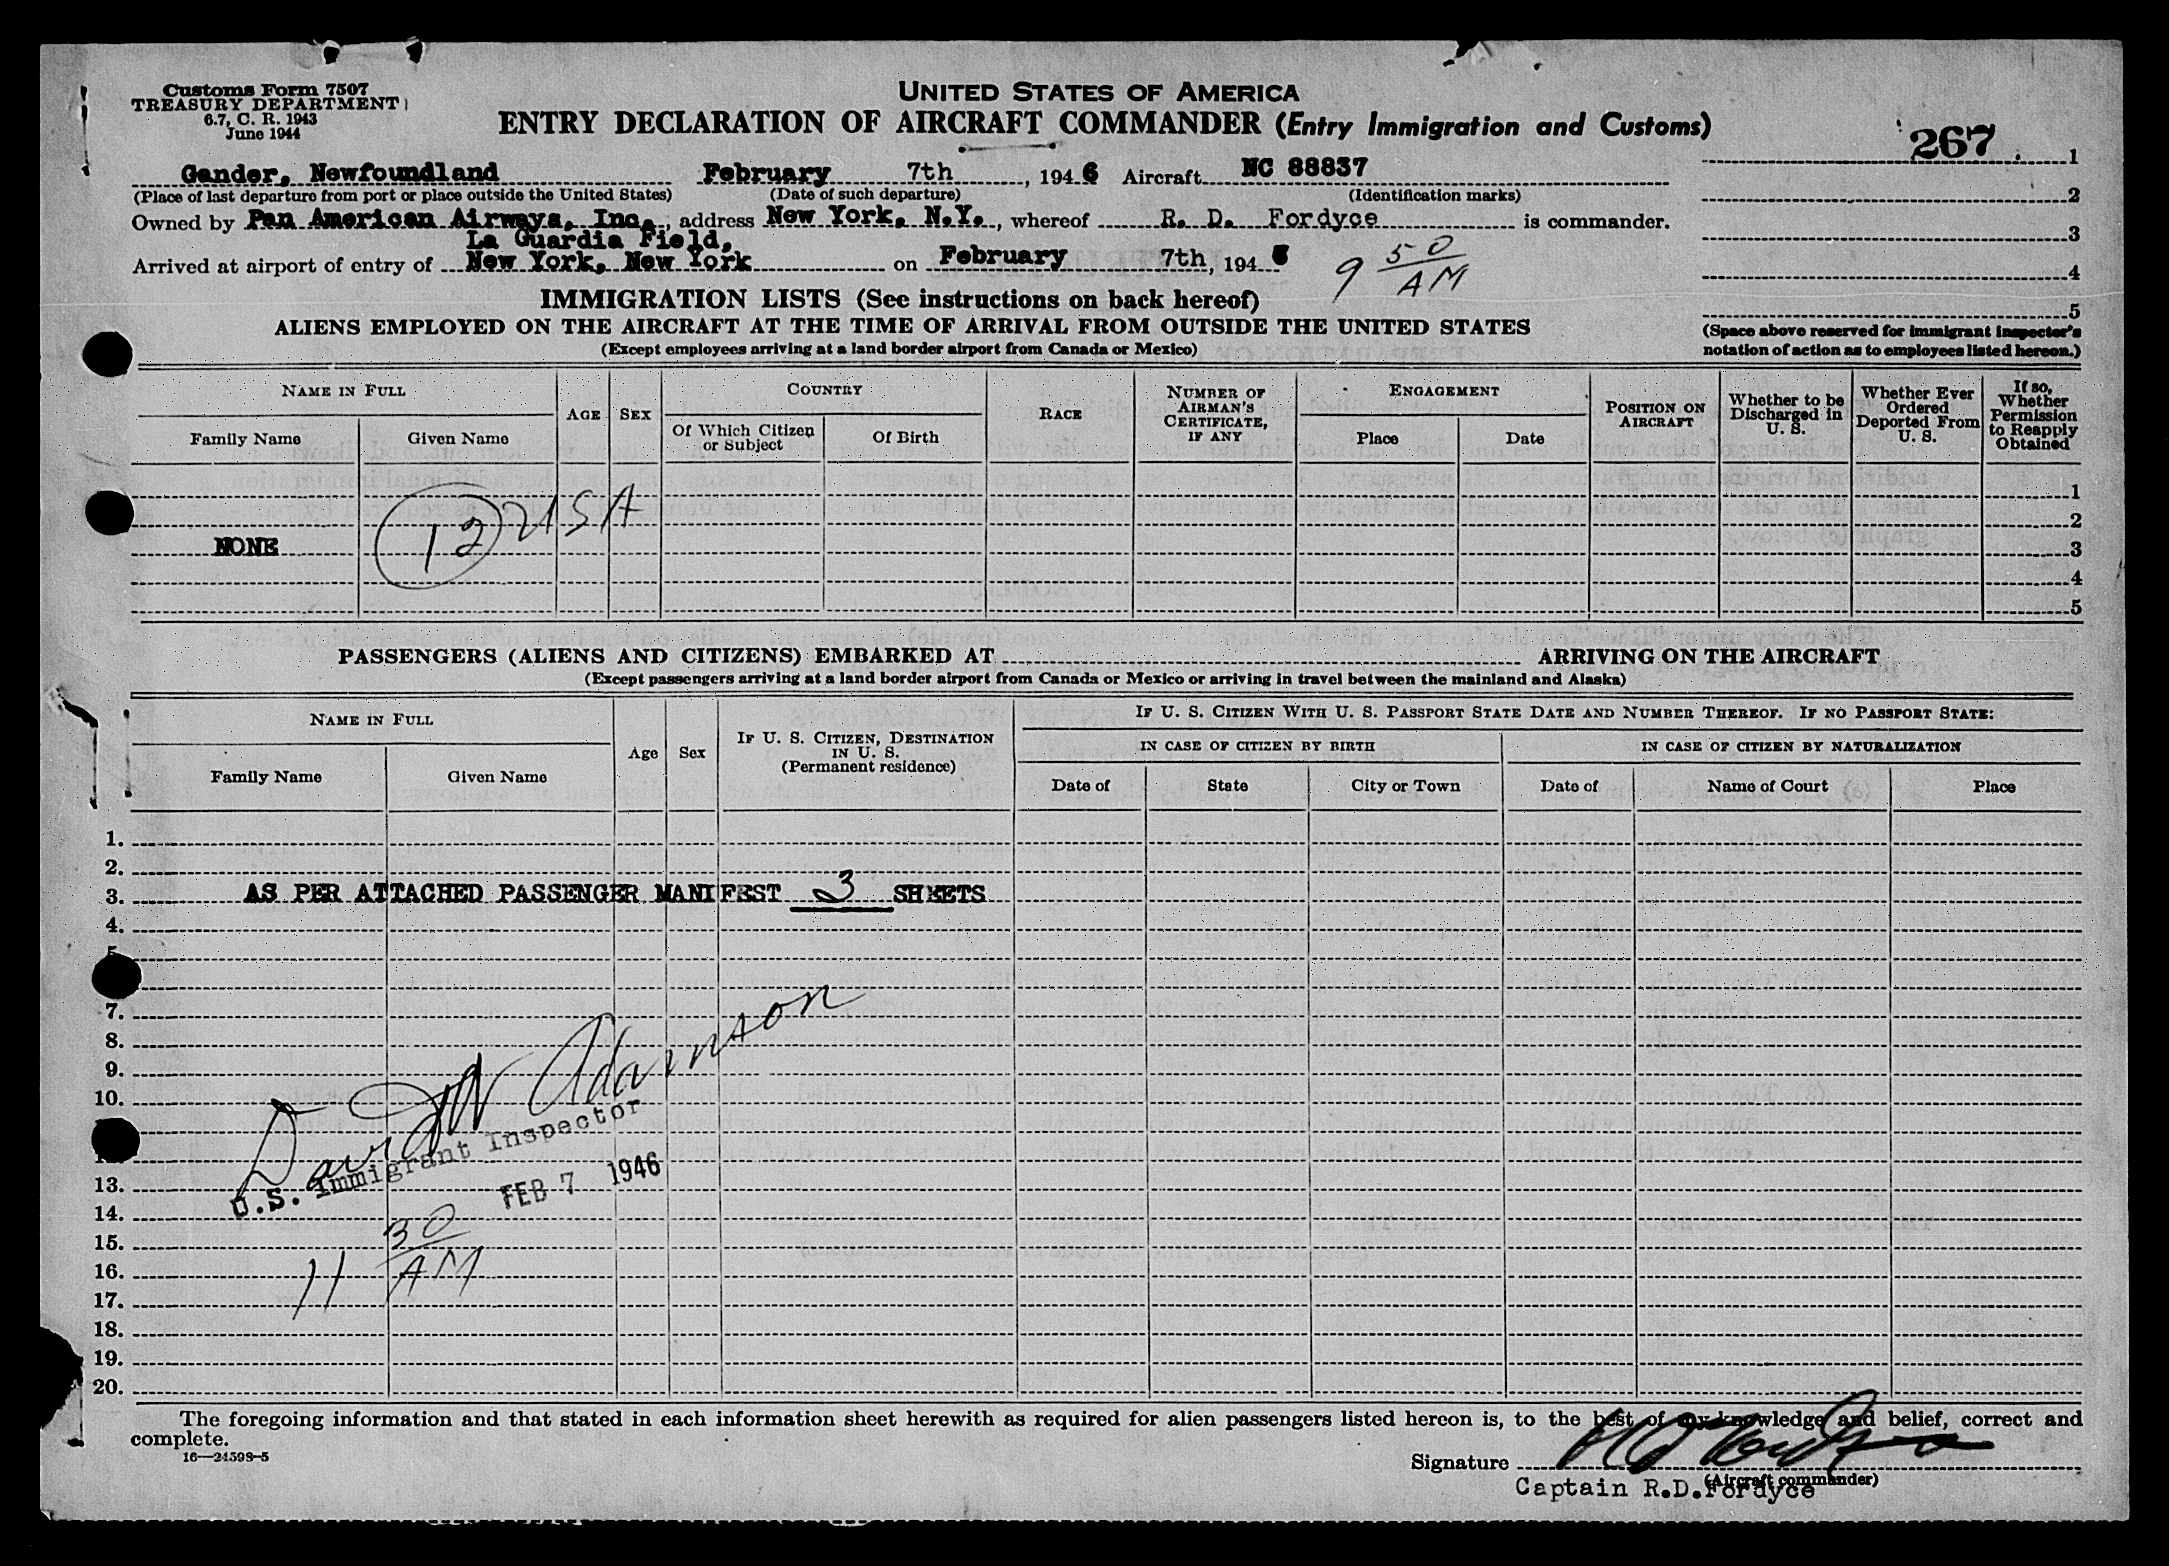 Customs Form 7507
TREASURY DEPARTMENT
6.7, C. R. 1943
June 1944
UNITED STATES OF AMERICA
ENTRY DECLARATION OF AIRCRAFT COMMANDER (Entry Immigration and Customs)
267
1
Gander, Newfoundland February 7th, 1946 Aircraft NC 88837
(Place of last departure from port or place outside the United States) (Date of such departure) (Identification marks)
2
Owned by Pan American Airways, Inc., address New York, N.Y., whereof R. D. Fordyce is commander.
3
La Guardia Field,
Arrived at airport of entry of New York, New York on February 7th, 1946 9 50 AM
4
IMMIGRATION LISTS (See instructions on back hereof)
5
ALIENS EMPLOYED ON THE AIRCRAFT AT THE TIME OF ARRIVAL FROM OUTSIDE THE UNITED STATES
(Except employees arriving at a land border airport from Canada or Mexico)
(Space above reserved for immigrant inspector's
notation of action as to employees listed hereon.)
NAME IN FULL
Family Name
Given Name
AGE
SEX
COUNTRY
Of Which Citizen or Subject
Of Birth
RACE
NUMBER OF AIRMAN'S CERTIFICATE, IF ANY
ENGAGEMENT
Place
Date
POSITION ON AIRCRAFT
Whether to be Discharged in U. S.
Whether Ever Ordered Deported From U. S.
If so, Whether Permission to Reapply Obtained
1
2
NONE 12 USA
3
4
5
PASSENGERS (ALIENS AND CITIZENS) EMBARKED AT ARRIVING ON THE AIRCRAFT
(Except passengers arriving at a land border airport from Canada or Mexico or arriving in travel between the mainland and Alaska)
NAME IN FULL
Family Name
Given Name
Age
Sex
IF U. S. CITIZEN, DESTINATION IN U. S.
(Permanent residence)
IF U. S. CITIZEN WITH U. S. PASSPORT STATE DATE AND NUMBER THEREOF. IF NO PASSPORT STATE:
IN CASE OF CITIZEN BY BIRTH
Date of
State
City or Town
IN CASE OF CITIZEN BY NATURALIZATION
Date of
Name of Court
Place
1.
2.
3. AS PER ATTACHED PASSENGER MANIFEST 3 SHEETS
4.
5
7.
8.
9.
10.
David W Adamson
U.S. Immigrant Inspector
13.
FEB 7 1946
14.
15.
11 30 AM
16.
17.
18.
19.
20.
The foregoing information and that stated in each information sheet herewith as required for alien passengers listed hereon is, to the best of my knowledge and belief, correct and
complete.
16—24598-5
Signature R D Fordyce
(Aircraft commander)
Captain R.D.Fordyce